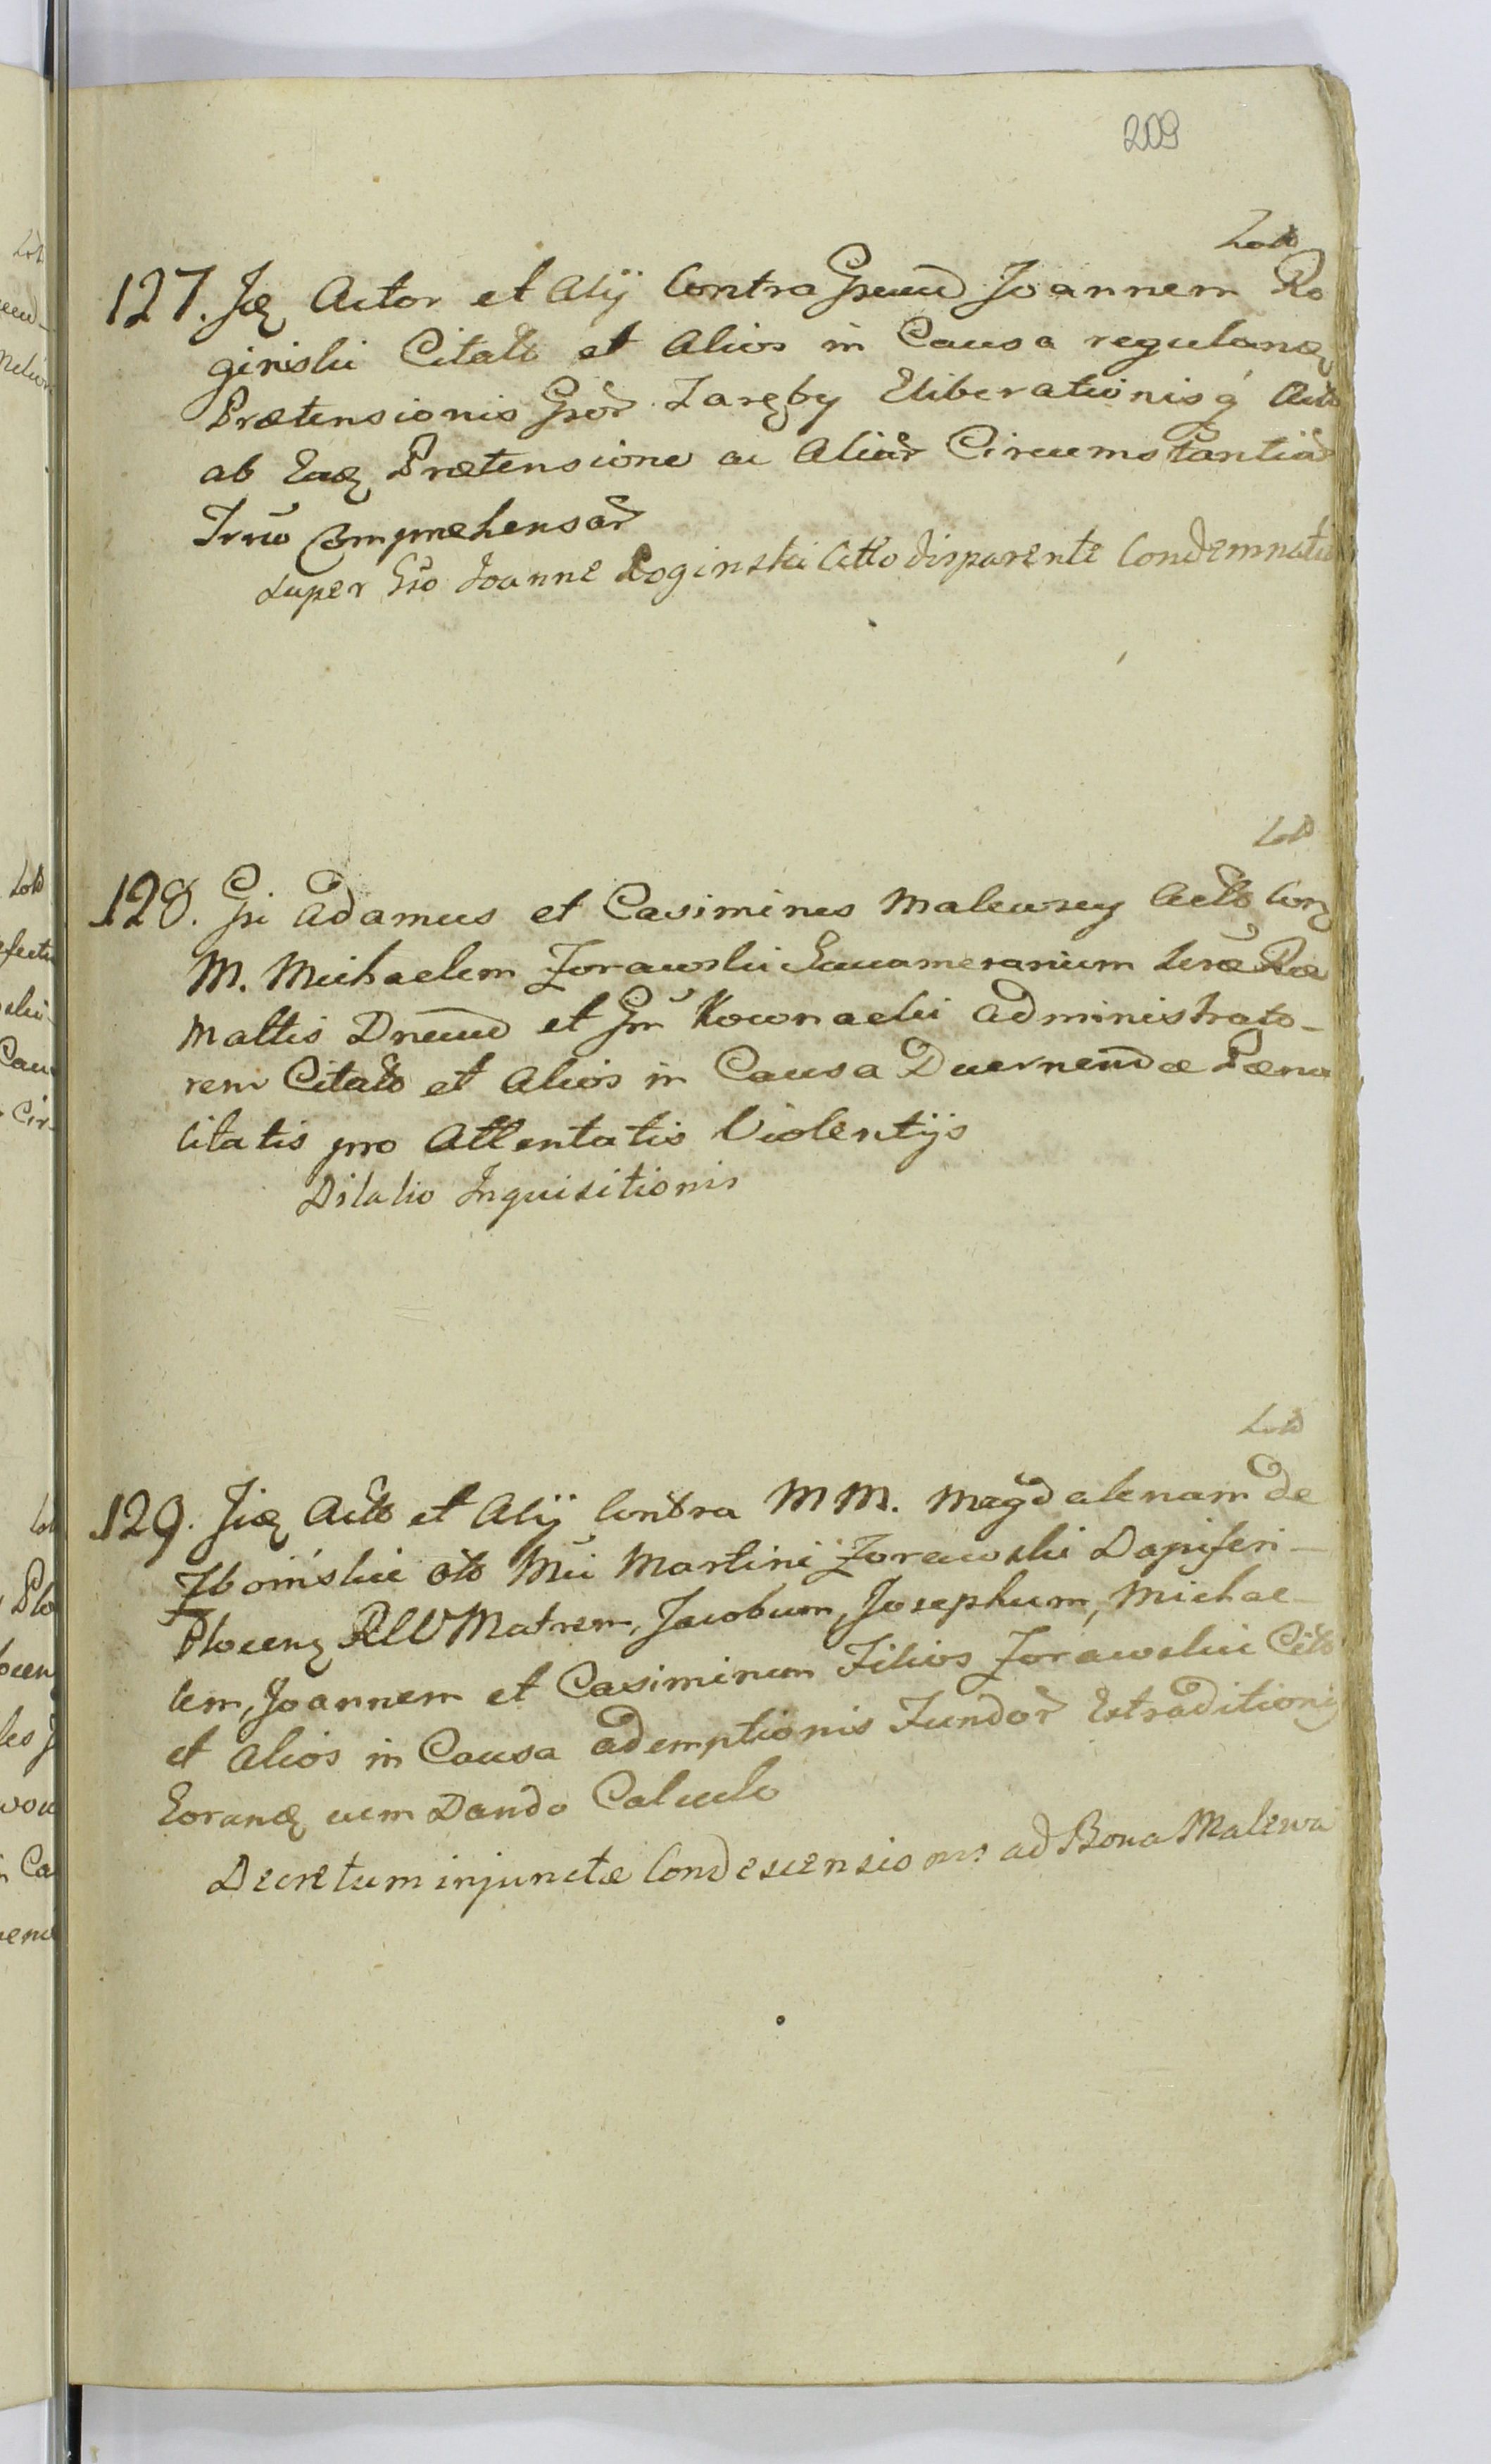 209
127. Jiz Actor et Alij Contra Gnum Joannem Ro
giński Citatt et Alios in Causa regulanz
Prætensionis Gnor Zaręby Eliberationisq́ Actt
ab Eadz Prætensione ac Aliar Circumstantiar
Comprehensar
Super Gso Joanne Roginski Citto disparente Condemnatio
128. Gsi Adamus et Casimirus Malewscy Actt Conz
M. Michaelem Zorawski Camerarium Terræ Ræ
Maltis et Gm Kownacki Administrato-
rem Citatt et Alios in Causa Decernendæ Pænæ
Citatis pro Attentatis Violentijs
Dilatio Inquisitionis
129. Jiz Actt et Alij Contra MM. Magdalenam de
Zboińskie Mci Martini Zorawski Dapiferi-
Plocenz Matrem, Jacobum, Josephum, Michae-
lem, Joannem et Casimirum Filios Zorawskie Citt
et Alios in Causa ademptionis Fundor Extraditionis
Eorundz cum Dando Calculo
Decretum injunctæ Condescensionis ad Bona Malewa